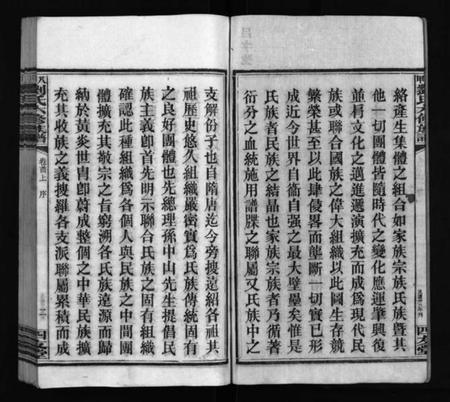 絡產生集體之組合如家族宗族民族暨其
他一切團體皆隨時代之變化應運肇興復
並肩文化之邁進遞演擴充而成為現代民
族或聯合國族之偉大組織以此圖生存競
繁榮甚至以此肆侵畧而壟斷一切實已形
成近今世界自衛自强之最大壁壘矣惟是
民族者民族之結晶也家族宗族者乃循著
衍分之血統施用譜牒之聯屬又氏族中之
支解份子也自隋唐迄今旁搜遠紹各祖其
祖歷史悠久組織嚴密實為民族傳統固有
之良好團體也先總理孫中山先生提倡民
族主義卽首先明示聯合民族之固有組織
確認此種組織為各個人與民族之中間團
體擴充其敬宗之旨窮溯各民族遠源而歸
納於黃炎世胄卽蔚成整個之中華民族擴
充其收族之義搜羅各支派聯屬累積而成
劉氏
修族譜
卷首上
序
四
堂